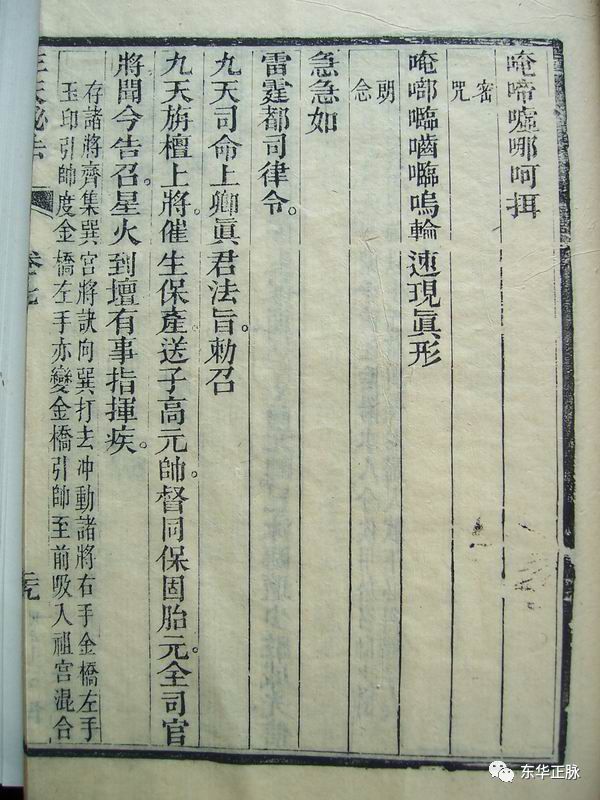 唵啼噓哪呵挕
密咒
唵啷𡄸嚙𡄸嗚輪速現眞形
朗念
急急如
雷霆都司律令。
九天司命上卿眞君法旨勅召
九天旃檀上將催生保產送子高元帥。督同保固胎元。全司官
將聞今告召。星火到壇。有事指揮疾。
存諸將齊集巽宮將訣向巽打去冲動諸將右手金橋左手
玉印引帥度金橋左手亦變金橋引帥至前吸入祖宮混合
卷七
东华正脉